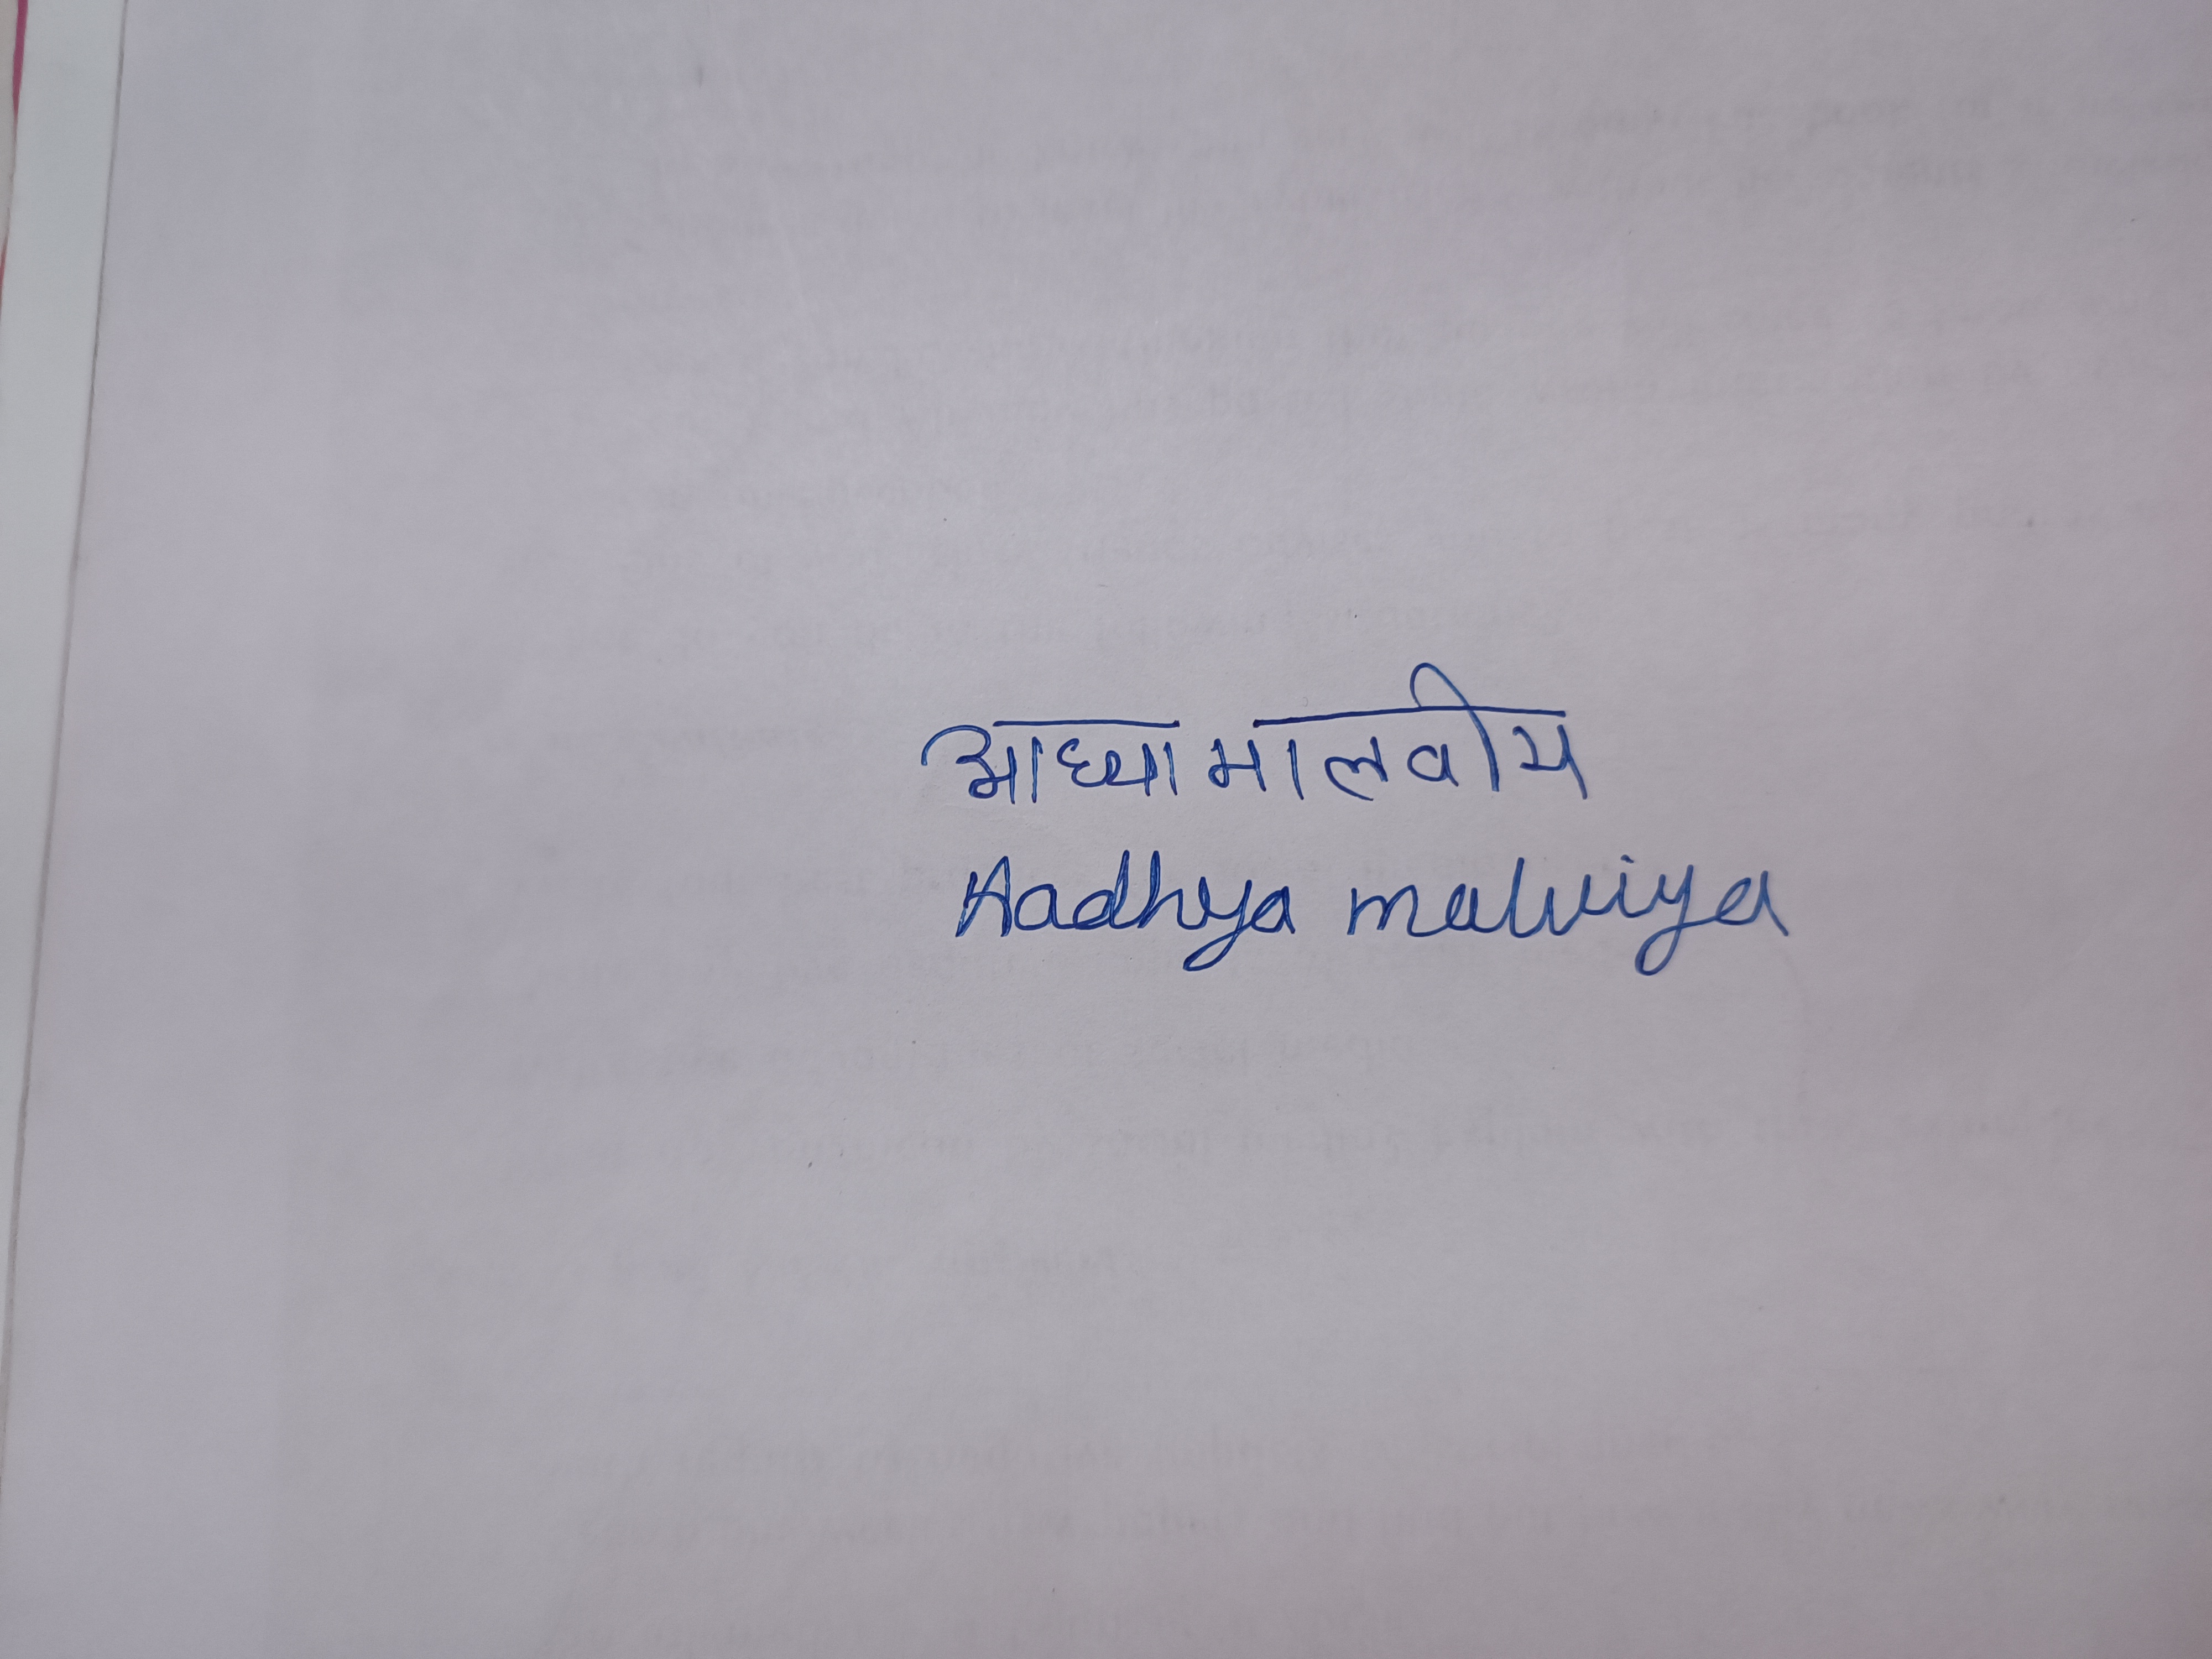 आध्या मालवीय
Aadhya malviya